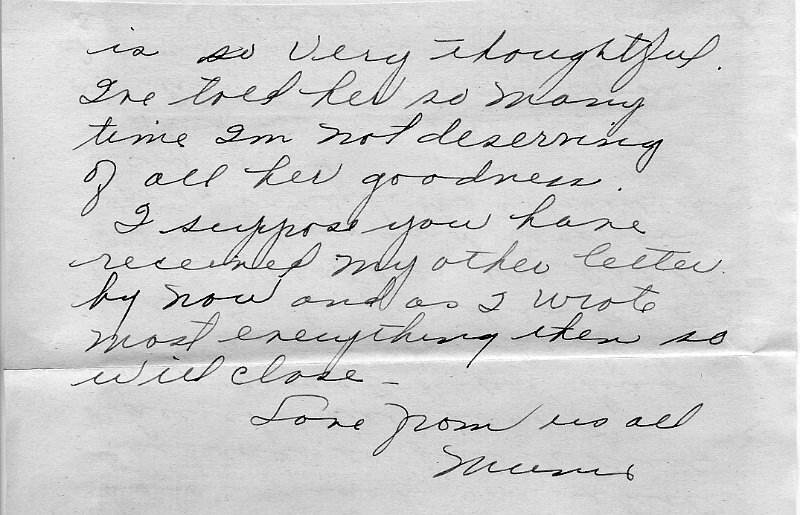 is so very thoughtful.
I've told her so many
time I'm not deserving
of all her goodness.
I suppose you have
received my other letter
by now and as I wrote
most everything then so
will close –
Love from us all